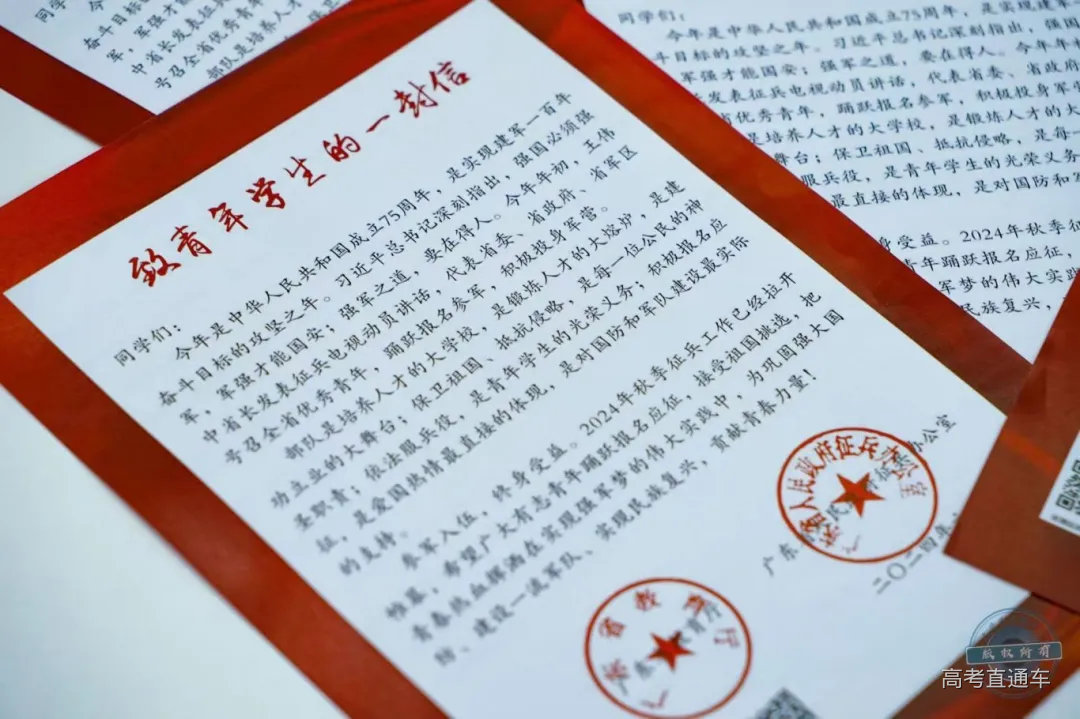 致青年学生的一封信
同学们：
今年是中华人民共和国成立75周年，是实现建军一百年
奋斗目标的攻坚之年。习近平总书记深刻指出，强国必须强
军，军强才能国安；强军之道，要在得人。今年年初，王伟
中省长发表征兵电视动员讲话，代表省委、省政府、省军区
号召全省优秀青年，踊跃报名参军，积极投身军营。
部队是培养人才的大学校，是锻炼人才的大熔炉，是建
功立业的大舞台；保卫祖国、抵抗侵略，是每一位公民的神
圣职责；依法服兵役，是青年学生的光荣义务；积极报名应
征，是爱国热情最直接的体现，是对国防和军队建设最实际
的支持。
参军入伍，终身受益。2024年秋季征兵工作已经拉开
帷幕，希望广大有志青年踊跃报名应征，接受祖国挑选，把
青春热血挥洒在实现强军梦的伟大实践中，为巩固强大国
防、建设一流军队、实现民族复兴，贡献青春力量！
广东省教育厅
广东省人民政府征兵办公室
二〇二四年
同学们：
今年是中华人民共和国成立75周年，是实现建军
斗目标的攻坚之年。习近平总书记深刻指出，强国
军强才能国安；强军之道，要在得人。今年年
发表征兵电视动员讲话，代表省委、省政府
省优秀青年，踊跃报名参军，积极投身军营
是培养人才的大学校，是锻炼人才的大
舞台；保卫祖国、抵抗侵略，是每一
服兵役，是青年学生的光荣义务
最直接的体现，是对国防和军
身受益。2024年秋季征
青年踊跃报名应征，
军梦的伟大实践
民族复兴，
奋斗目标的
军，军强才
中省长发表征兵
号召全省优秀青年
部队是培养人才
版权所有
高考直通车